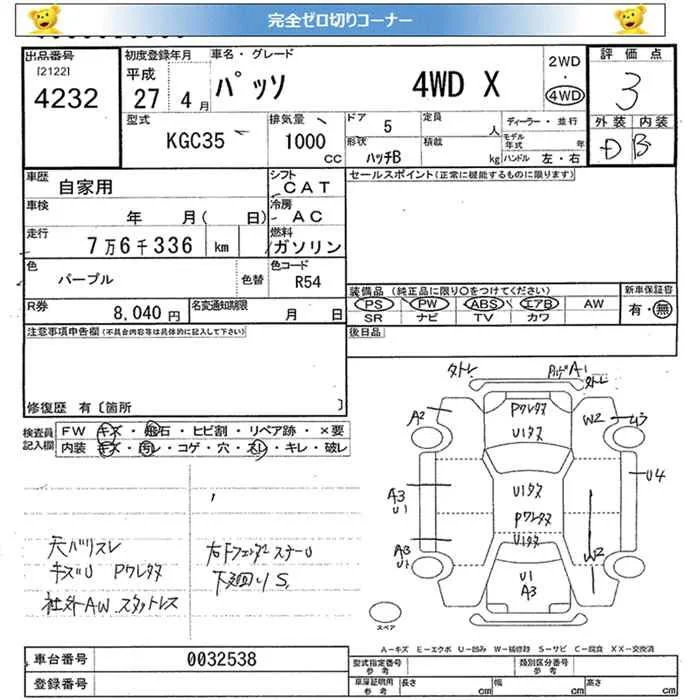 完全ゼロ切りコーナー
出品番号
[2122]
4232
初度登録年月
平成
27 4月
車名・グレード
パッソ 4WD X
2WD
・
4WD
評価点
3
外装 内装
D B
型式
KGC35
排気量
1000
CC
ドア 5
形状 ハッチB
定員 人
積載 kg
ディーラー・並行
モデル年式 年
ハンドル 左・右
車歴
自家用
シフト
CAT
車検
年 月( 日)
冷房
AC
走行
7万6千336 km
燃料
ガソリン
色
パープル
色替
色コード
R54
R券
8,040円
名変通知期限
月 日
セールスポイント(正常に機能するものに限ります)
装備品(純正品に限り〇をつけてください)
PS PW ABS エアB AW
SR ナビ TV カワ
新車保証書
有・無
後日品
注意事項申告欄(不具合内容等は具体的に記入して下さい)
修復歴 有〔箇所 〕
検査員
記入欄
FW キズ・飛石・ヒビ割・リペア跡・×要
内装 キズ・汚レ・コゲ・穴・スレ・キレ・破レ
天バリスレ
キズU PワレタX
社外AW.スタットレス
下廻りS
A2
W2
U4
A3
U1
A3
U1
PワレタX
U1タX
U1タX
PワレタX
U1タX
W2
U1
A3
スペア
A-キズ E-エクボ U-凹み W-補修跡 S-サビ C-腐食 XX-交換済
車台番号 0032538
登録番号
型式指定番号
参考
類別区分番号
参考
車庫証明用
参考
長さ cm 幅 cm 高さ cm